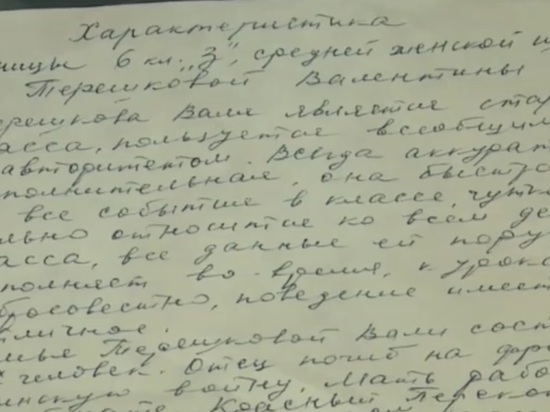 Характеристика
ницы 6 кл. "З", средней женской ш
Терешковой Валентины
ерешкова Валя является стар
асса, пользуется всеобщим
авторитетом. Всегда аккурат
полнительная, она быстро
все событие в классе, чутк
льно относится ко всем де
асса, все данные ей пору
полняет во-время, к урока
бросовестно, поведение имеет
тличное.
мье Терешковой Вали сост
человек. Отец погиб на фр
инскую войну. Мать рабо
Красный Переко